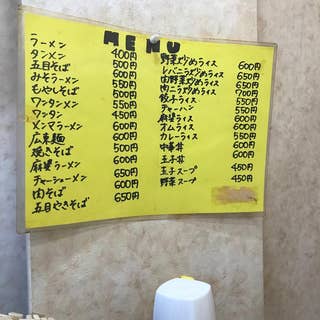 MENU
ラーメン 400円
タンメン 500円
五目そば 550円
みそラーメン 500円
もやしそば 550円
ワンタンメン 450円
ワンタン 600円
メンマラーメン 600円
広東麺 500円
焼きそば 600円
麻婆ラーメン 650円
チャーシューメン 600円
肉そば 650円
五目やきそば
野菜炒めライス 600円
レバニラ炒めライス 650円
肉野菜炒めライス 650円
肉ニラ炒めライス 700円
餃子ライス 550円
チャーハン 550円
麻婆ライス 600円
オムライス 600円
カレーライス 550円
中華丼 600円
玉子丼 600円
玉子スープ 450円
野菜スープ 450円